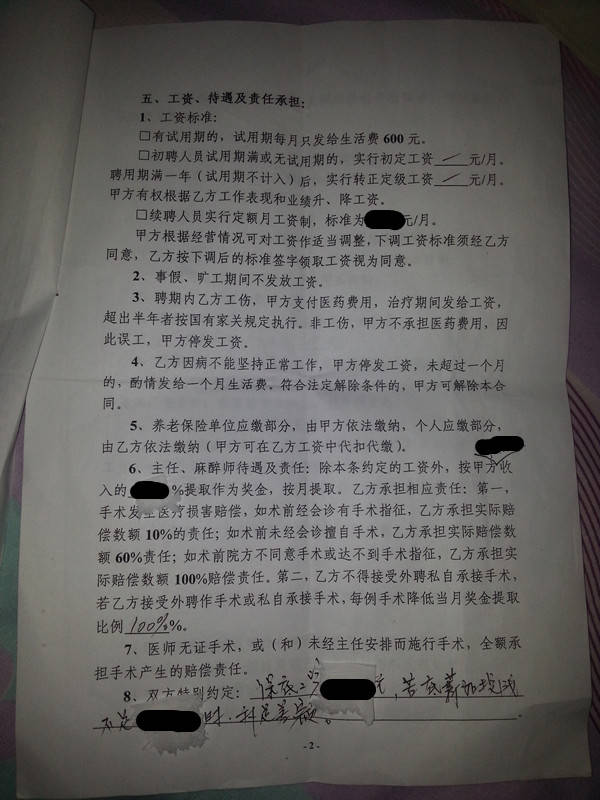 五、工资、待遇及责任承担：
1、工资标准：
□有试用期的，试用期每月只发给生活费 600 元。
□初聘人员试用期满或无试用期的，实行初定工资 / 元/月。
聘用期满一年（试用期不计入）后，实行转正定级工资 / 元/月。
甲方有权根据乙方工作表现和业绩升、降工资。
□续聘人员实行定额月工资制，标准为 元/月。
甲方根据经营情况可对工资作适当调整，下调工资标准须经乙方
同意，乙方按下调后的标准签字领取工资视为同意。
2、事假、旷工期间不发放工资。
3、聘期内乙方工伤，甲方支付医药费用，治疗期间发给工资，
超出半年者按国有家关规定执行。非工伤，甲方不承担医药费用，因
此误工，甲方停发工资。
4、乙方因病不能坚持正常工作，甲方停发工资，未超过一个月
的，酌情发给一个月生活费。符合法定解除条件的，甲方可解除本合
同。
5、养老保险单位应缴部分，由甲方依法缴纳，个人应缴部分，
由乙方依法缴纳（甲方可在乙方工资中代扣代缴）。
6、主任、麻醉师待遇及责任：除本条约定的工资外，按甲方收
入的 %提取作为奖金，按月提取。乙方承担相应责任：第一，
手术发生医疗损害赔偿，如术前经会诊有手术指征，乙方承担实际赔
偿数额 10%的责任；如术前未经会诊擅自手术，乙方承担实际赔偿数
额 60%责任；如术前院方不同意手术或达不到手术指征，乙方承担实
际赔偿数额 100%赔偿责任。第二，乙方不得接受外聘私自承接手术，
若乙方接受外聘作手术或私自承接手术，每例手术降低当月奖金提取
比例 100% %。
7、医师无证手术，或（和）未经主任安排而施行手术，全额承
担手术产生的赔偿责任。
8、双方特别约定：保底 元，若底薪加
不足 时，补足差额。
- 2 -